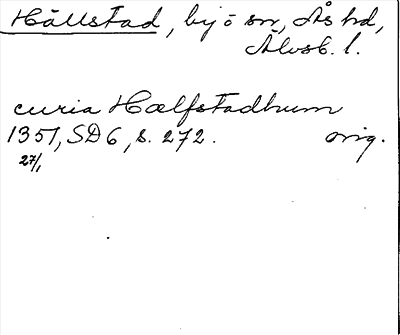 Hällstad, by ö sn, Ås hd,
Älvsb. l.
curia Hælfstadhum
1351, SD 6, s. 272. orig.
27/1